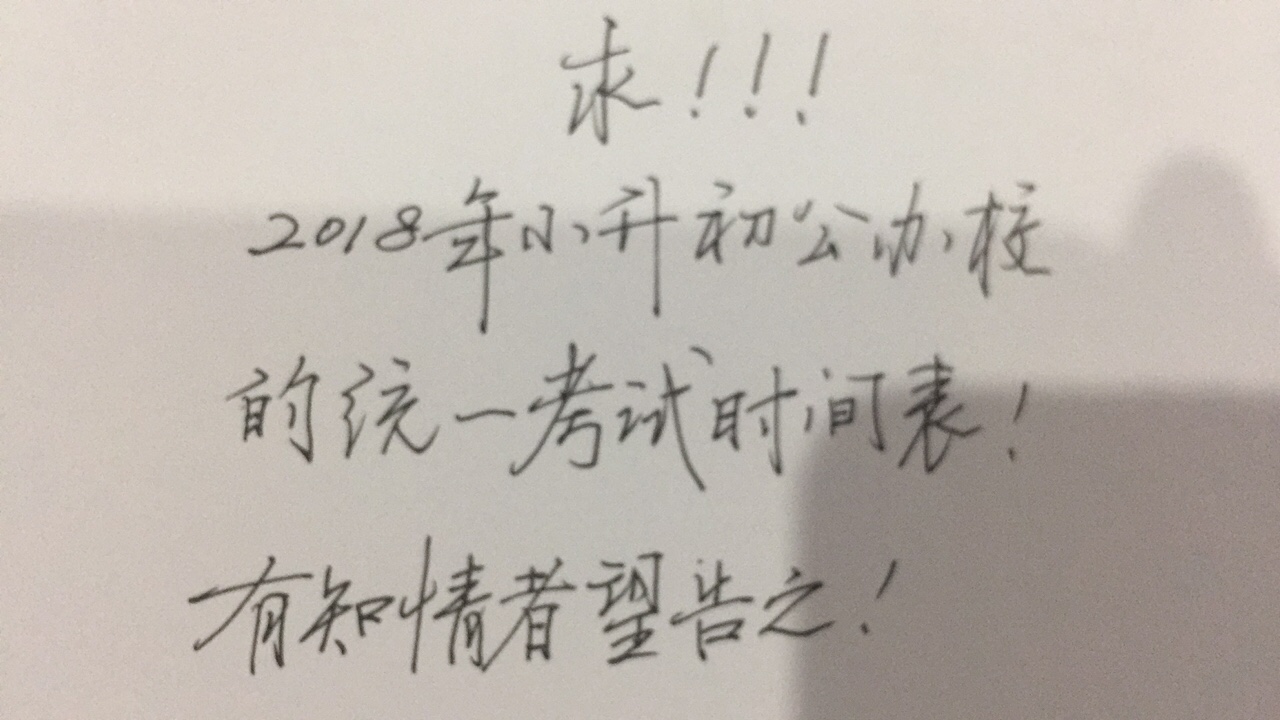 求!!!
2018年小升初公办校
的统一考试时间表!
有知情者望告之!